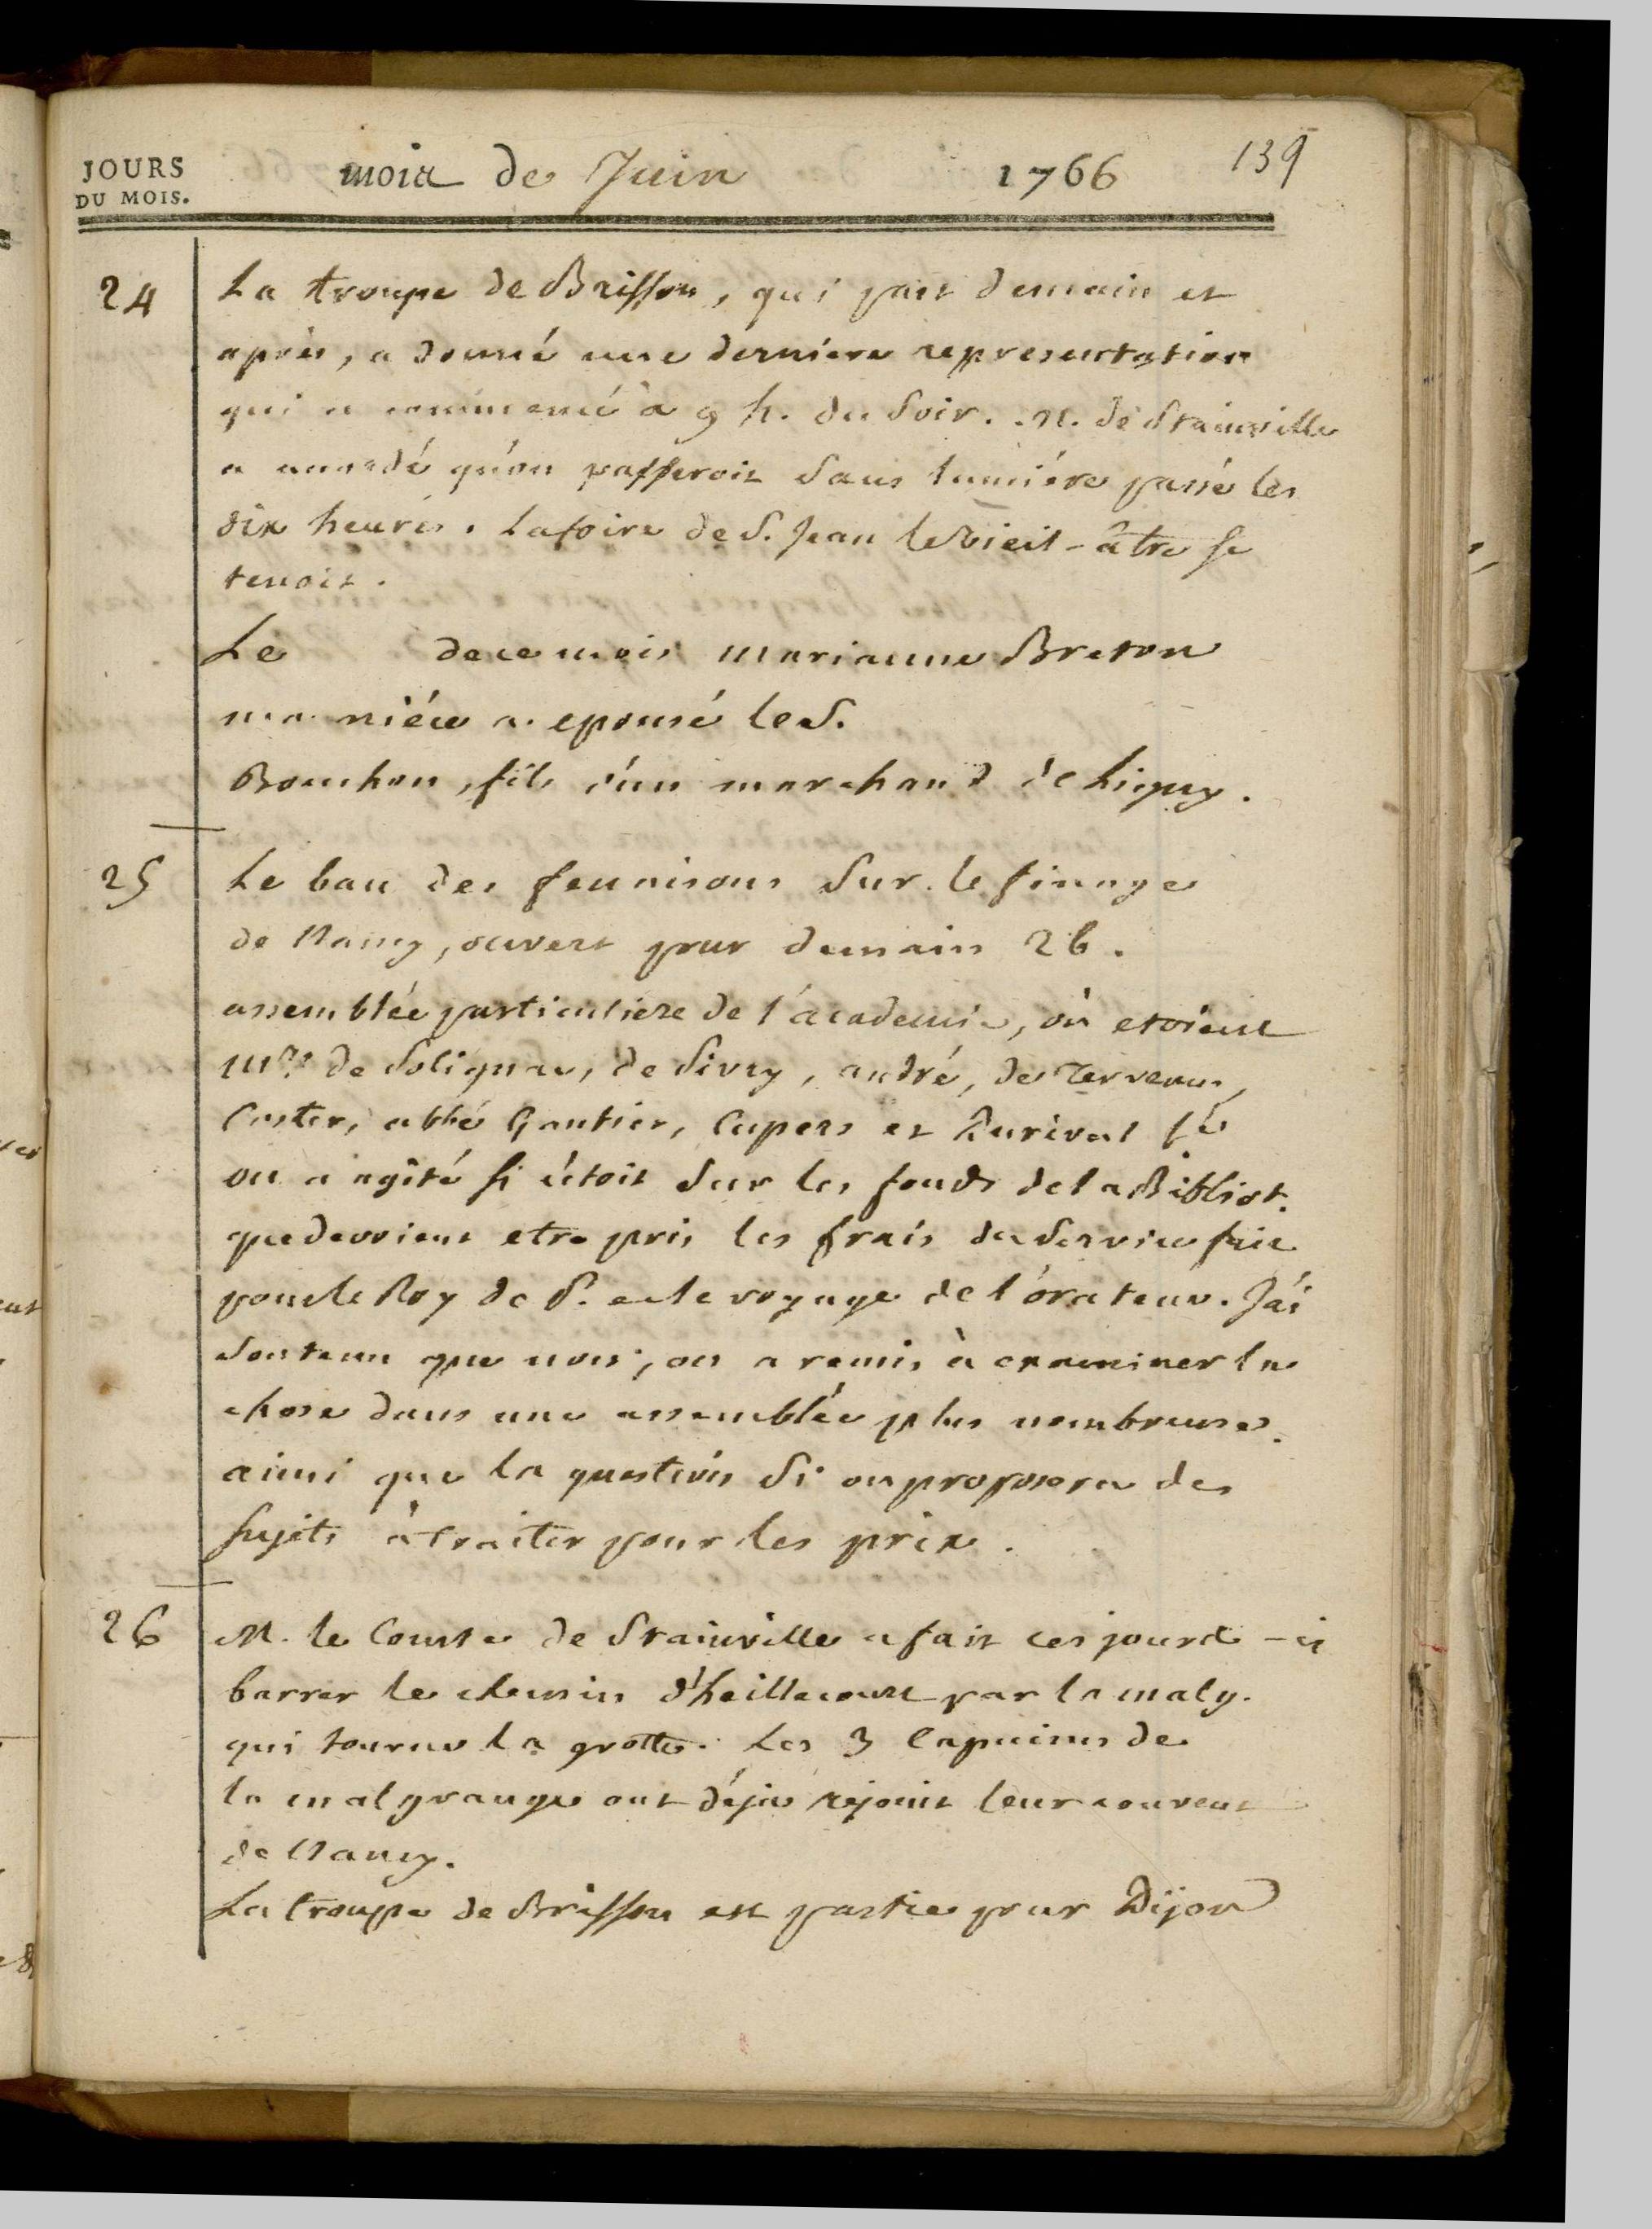 JOURS
DU MOIS.
mois de Juin 1766 139
24 La troupe de Brisson, qui part demain et
après, a donné une derniere representation
qui a commencé à 9 h. du soir. M. de Stainville
a accordé qu'on passeroit sans lumiére passé les
dix heures. La foire de S. Jean le vieil-âtre se
tenoit.
Le de ce mois marianne Breton
ma niéce a epousé le S.
Bouchon, fils d'un marchand de Ligny.
25 Le ban des fenaisons sur le finage
de Nancy, ouvert pour demain 26.
assemblée particuliere de l'académie, où etoient
Mrs de Solignac, de Sivry, andré, de Tervenus,
Coster, abbé Gautier, Cupers et Durival
on a agité si c'étoit sur les fonds de la Bibliot.
que devoient etre pris les frais du service fait
pour le Roy de P. et le voyage de l'orateur. J'ai
soutenu que non; on a remis à examiner la
chose dans une assemblée plus nombreuse.
ainsi que la question si on proposera des
sujets à traiter pour les prix.
26 M. le Comte de Stainville a fait ces jours-ci
barrer le chemin d'heillecourt par la malg.
qui tourne la grotte. Les 3 Capucins de
la malgrange ont déja rejoint leur couvent
de Nancy.
La troupe de Brisson est partie pour Dijon